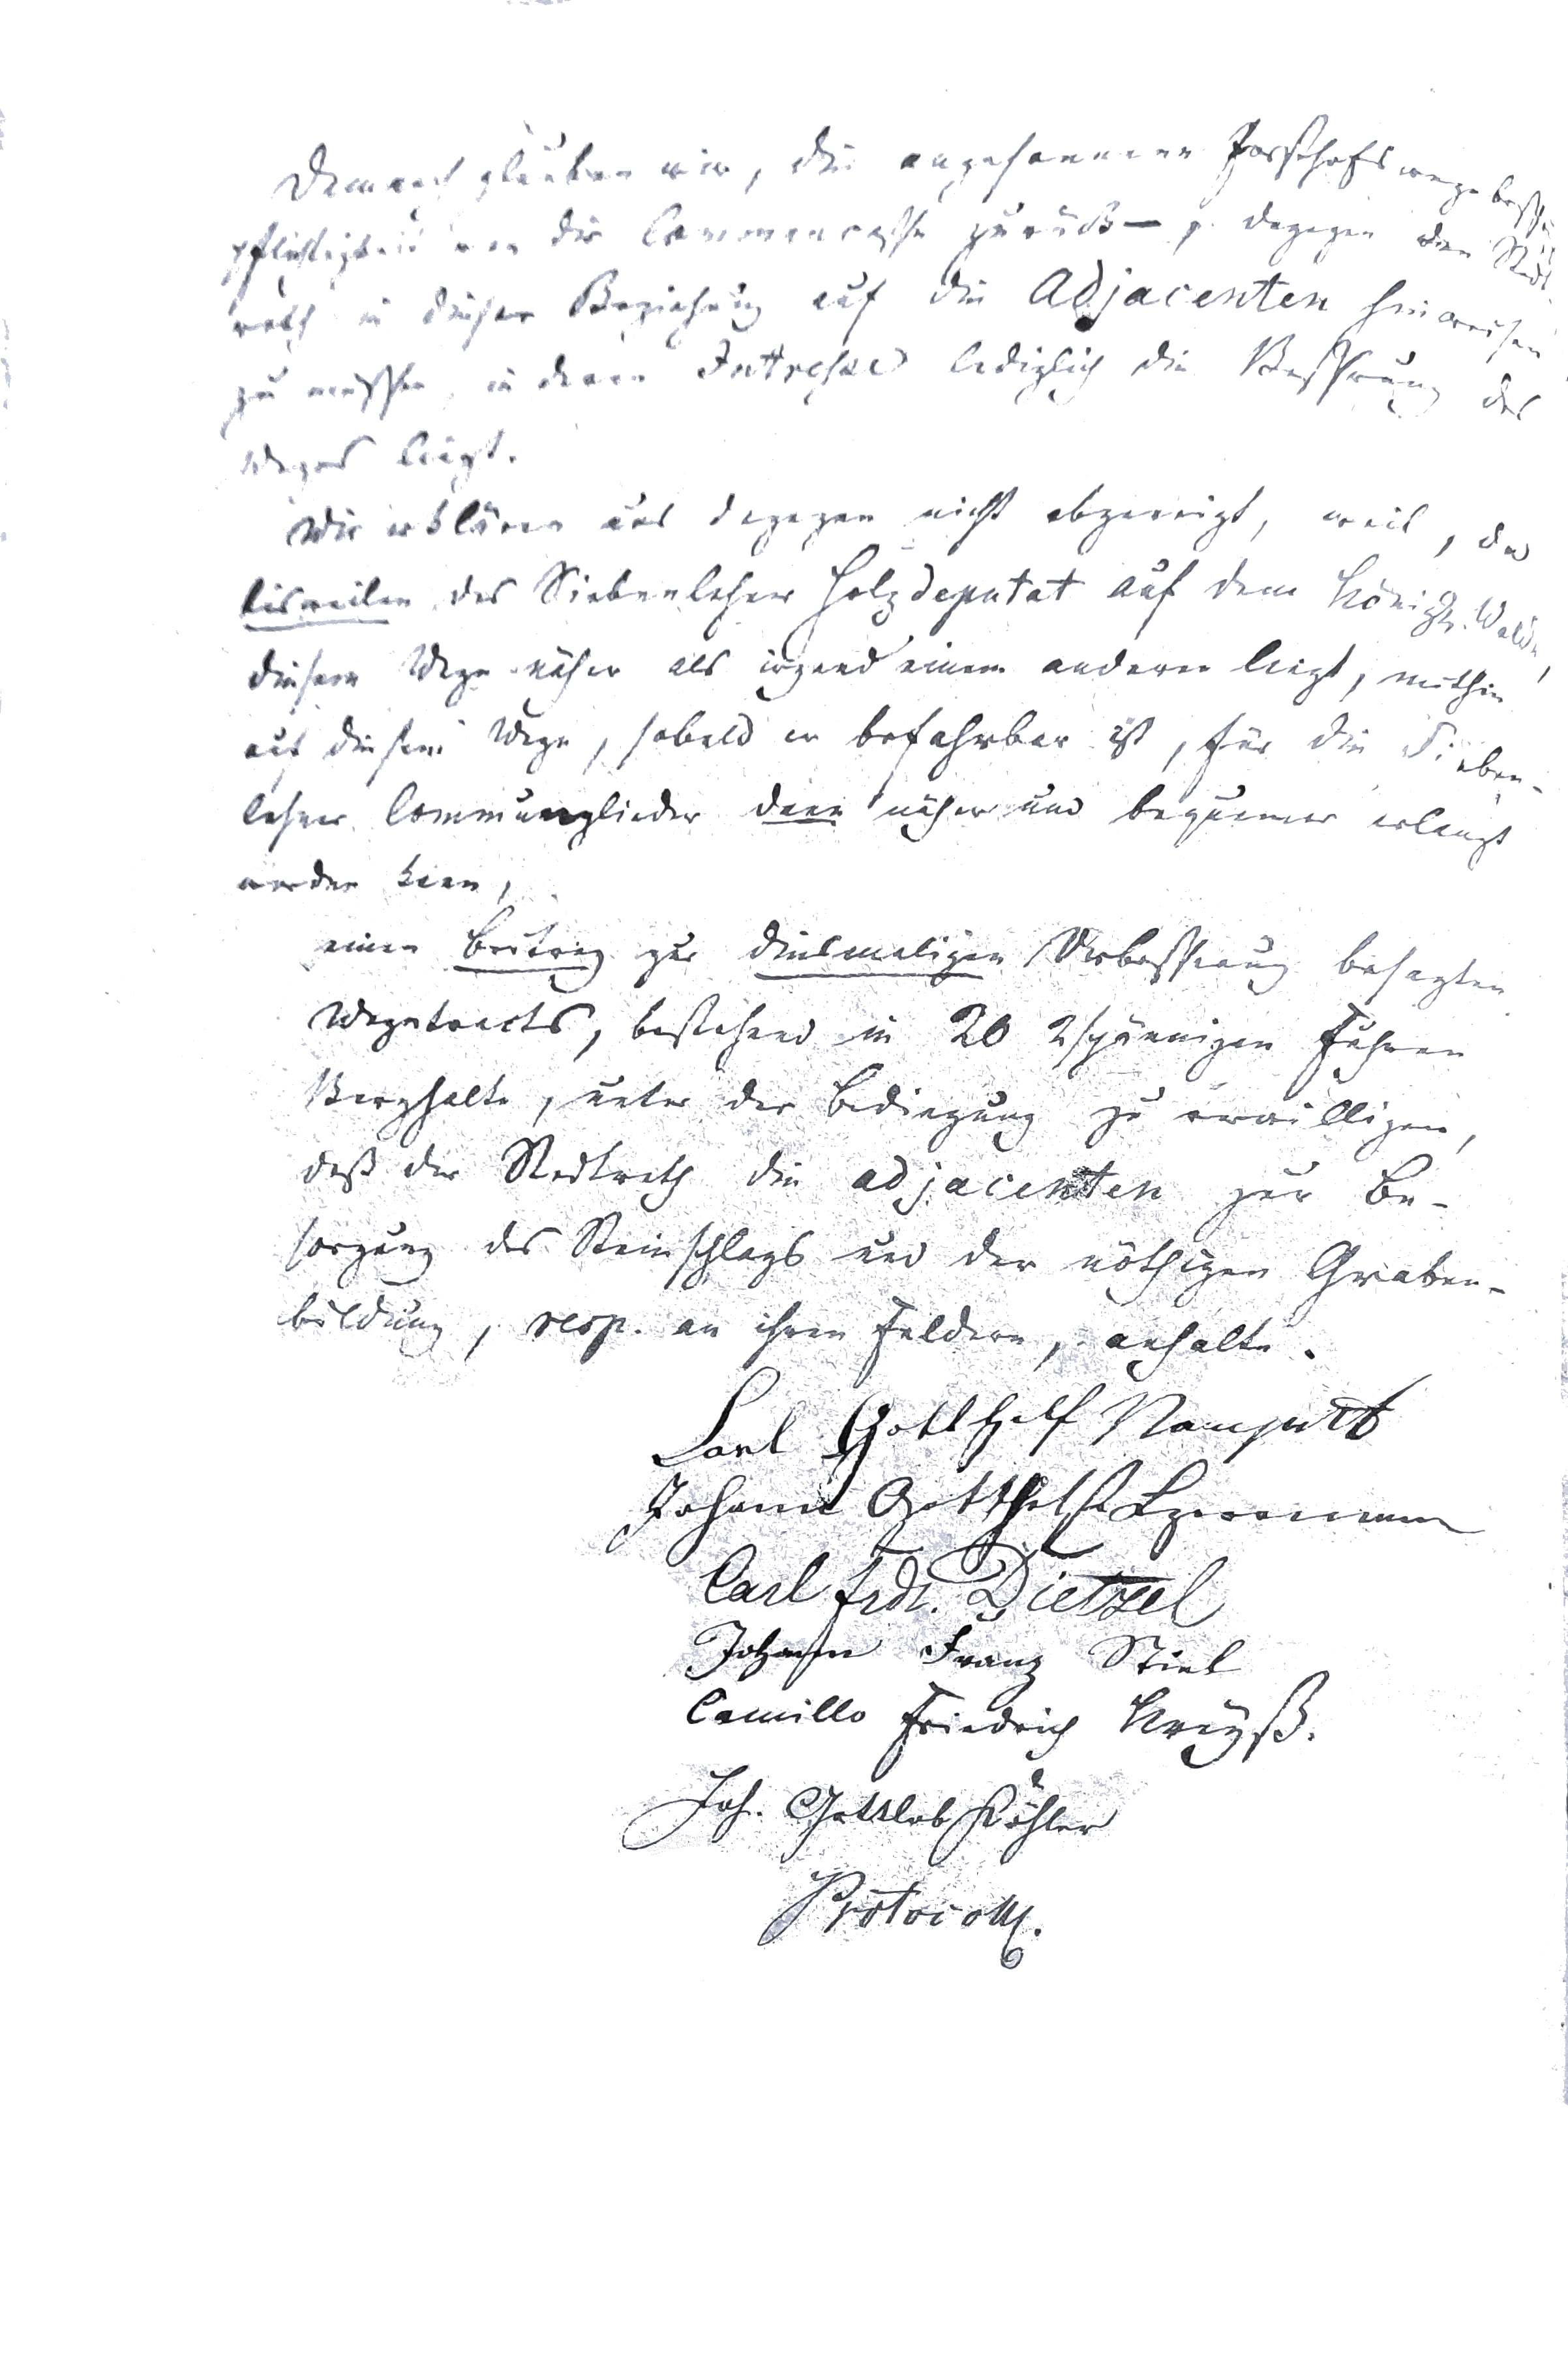 Demnach glauben wir, die angesonnene Forsthofswegebesserungs-
pflichtigkeit von der Communcasse zurück- u. dagegen den Stadt-
rath in dieser Beziehung auf die Adjacenten hinweisen
zu müssen, in deren Intresse lediglich die Besserung des
Weges liegt.
Wir erklären uns dagegen nicht abgeneigt, weil, da
bisweilen das Siebenlehner Holzdeputat auf dem Königl. Walde,
diesem Wege näher als irgend einem anderen liegt, mithin
auf diesem Wege, sobald er befahrbar ist, für die Sieben-
lehner Communglieder dann näher und bequemer erlangt
werden kann,
einen Beitrag zur diesmaligen Verbesserung besagten
Wegetracts, bestehend in 20 2spännigen Fuhren
Berghalte, unter der Bedingung zu verwilligen,
daß der Stadtrath die adjacenten zur Be-
sorgung des Steinschlags und der nöthigen Graben-
bildung, resp. an ihren Feldern, anhalte.
Carl Gotthelf
Johann Gotthelf
Carl Frdr. Dietzel
Johann Franz Stiel
Camillo Friedrich Kreyß.
Joh. Gottlob Köhler
Protocoll.